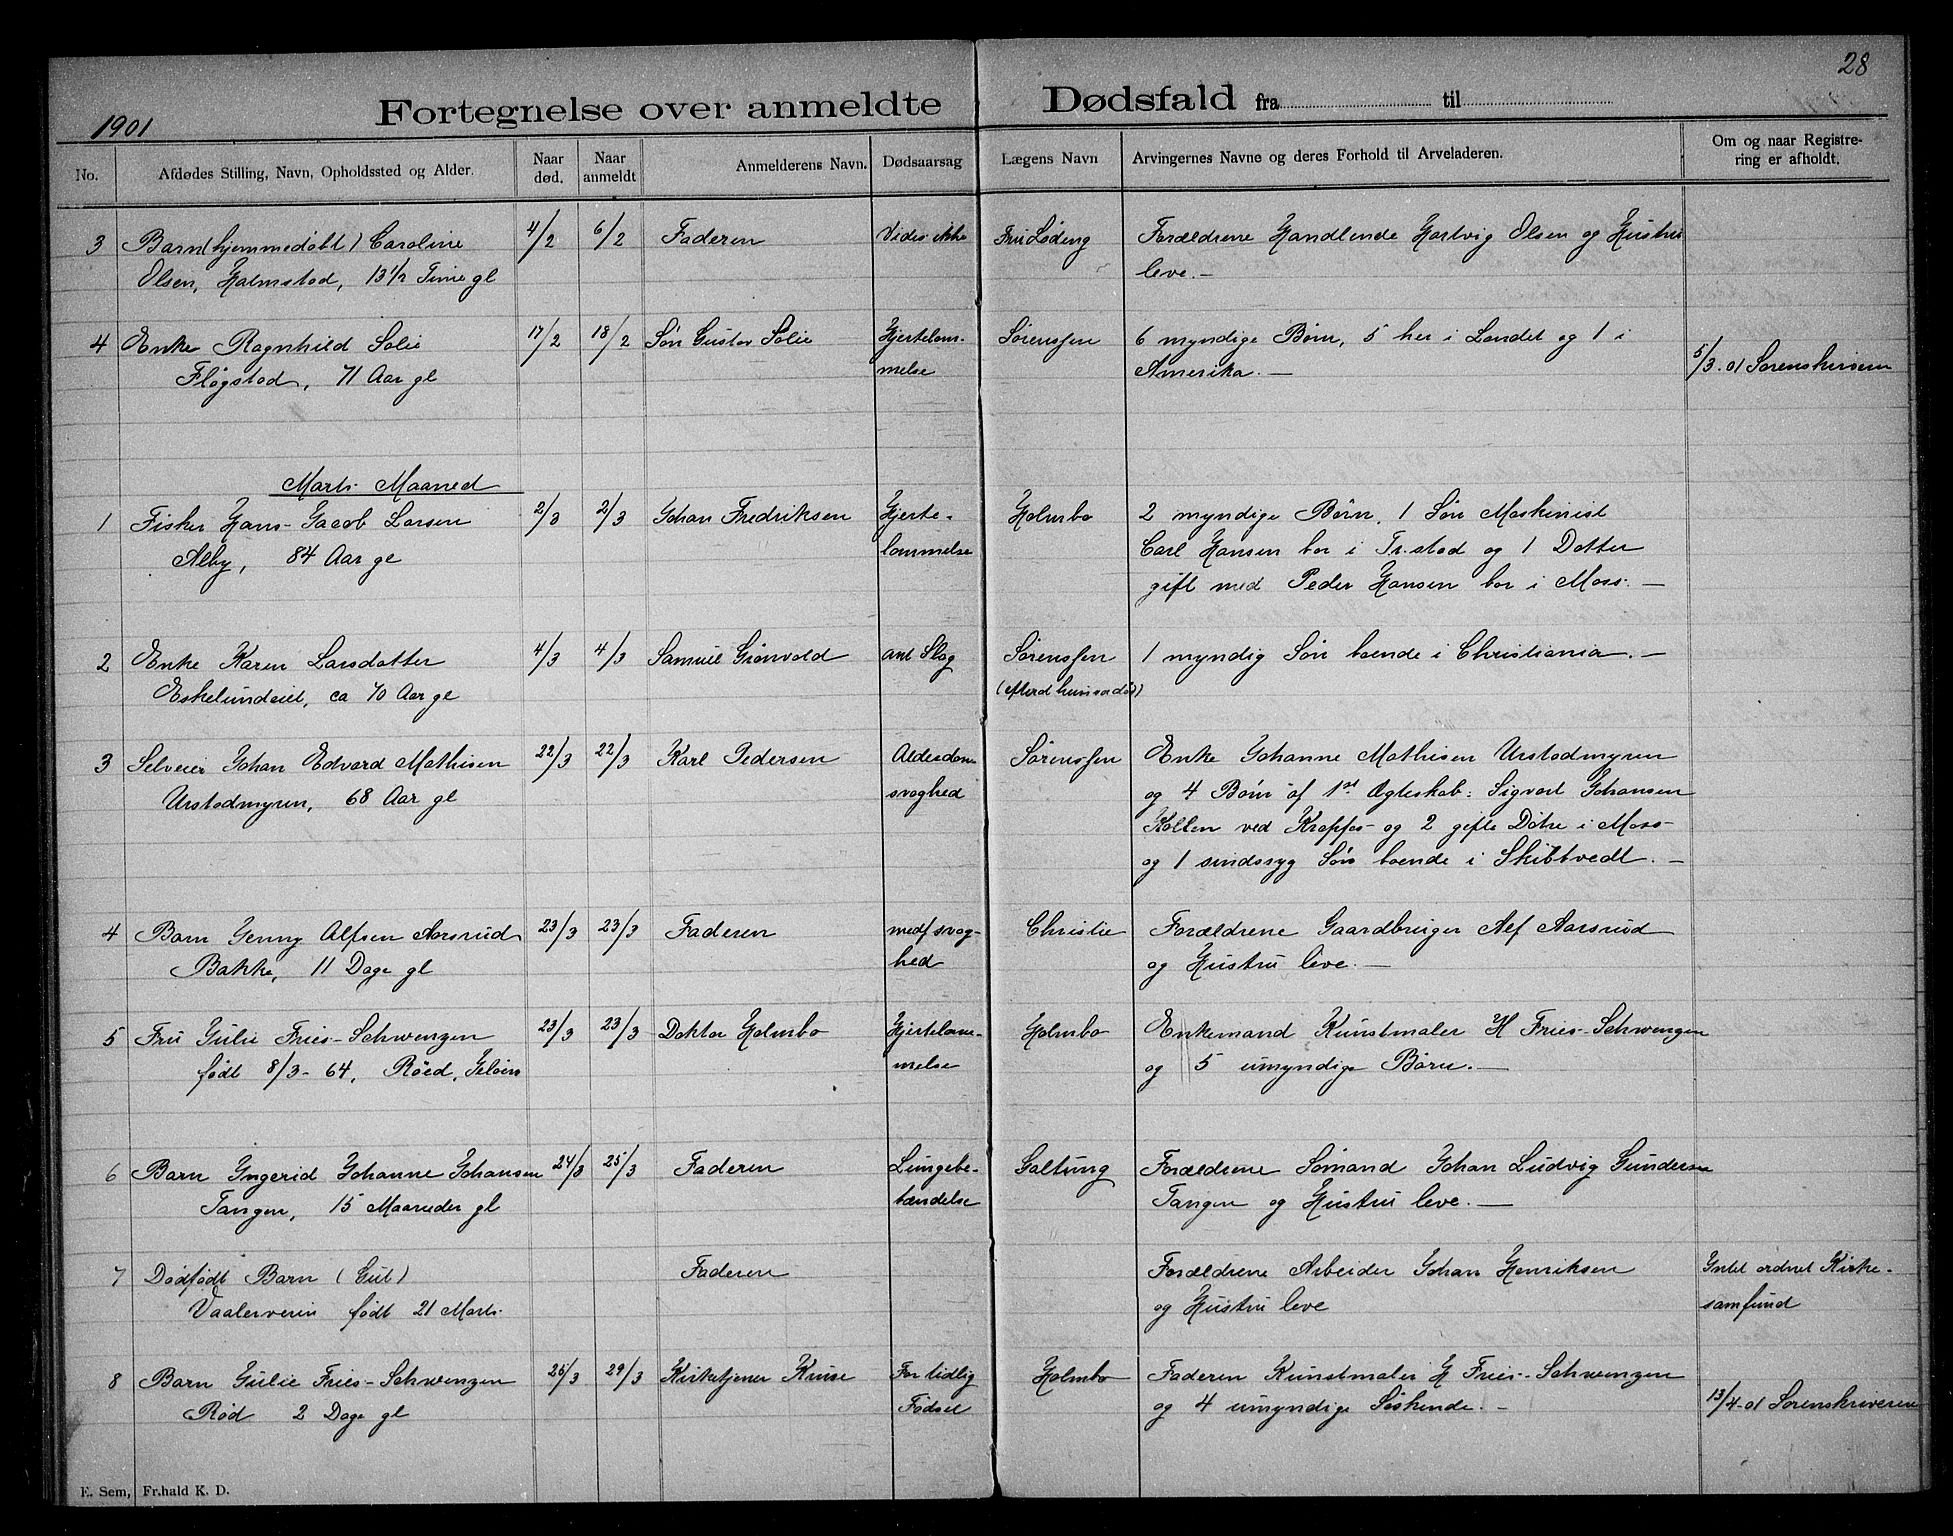 28
1901
Fortegnelse over anmeldte Dødsfald fra til
No.
Afdødes Stilling, Navn, Opholdssted og Alder.
Naar død.
Naar anmeldt
Anmelderens Navn.
Dødsaarsag
Lægens Navn
Arvingernes Navne og deres Forhold til Arveladeren.
Om og naar Registre-
ring er afholdt.
3 Barn (hjemmedøbt) Caroline 4/2 6/2 Faderen Vides ikke Fru Løding Forældrene Handlende Hartvig Olsen og Hustru
Olsen, Halmstad, 13 1/2 Time gl leve. —
4 Enke Ragnhild Solie 17/2 18/2 Søn Gustav Solie Hjertelam- Sørenssen 6 myndige Børn, 5 her i Landet og 1 i
Fløgstad, 71 Aar gl melse Amerika. — 5/3-01 Sorenskriveren
Marts Maaned
1 Fisker Hans Jacob Larsen 2/3 2/3 Johan Fredriksen Hjerte- Holmbo 2 myndige Børn, 1 Søn Maskinist
Alby, 84 Aar gl lammelse Carl Hansen bor i Fr.stad og 1 Datter
gift med Peder Hansen bor i Moss. —
2 Enke Karen Larsdatter 4/3 4/3 Samuel Grønvold ant Slag Sørenssen 1 myndig Søn boende i Christiania. —
Eskelundeiet, ca 70 Aar gl (efterat hun var død)
3 Selveier Johan Edvard Mathisen 22/3 22/3 Karl Pedersen Alderdoms Sørenssen Enke Johanne Mathisen Urstadmyren
Urstadmyren, 68 Aar gl svaghed og 4 Børn af 1st Ægteskab: Sigvart Johansen
Kollen ved Krappes- og 2 gifte Døtre i Moss-
og 1 sindssyg Søn boende i Skibtvedt. —
4 Barn Jenny Alfsen Aarsrud 23/3 23/3 Faderen medf svag- Christie Forældrene Gaardbruger Alf Aarsrud
Bakke, 11 Dage gl hed og Hustru leve. —
5 Fru Julie Fries-Schwenzen 23/3 23/3 Doktor Holmbo Hjertelam- Holmbo Enkemand Kunstmaler H Fries-Schwenzen
født 8/3-64, Röed, Jeløen melse og 5 umyndige Børn. —
6 Barn Ingerid Johanne Johansen 24/3 25/3 Faderen Lungebe- Galtung Forældrene Sømand Johan Ludvig Gundersen
Tangen, 15 Maaneder gl tændelse Tangen og Hustru leve. —
7 Dødfødt Barn (Gut) Faderen Forældrene Arbeider Johan Henriksen Intet ordnet Kirke-
Vaalerveien født 21 Marts og Hustru leve samfund
8 Barn Julie Fries-Schwenzen 25/3 29/3 Kirketjener Kruse For tidlig Holmbo Faderen Kunstmaler H Fries-Schwenzen
Rød 2 Dage gl Fødsel og 4 umyndige Søskende. — 13/4-01 Sorenskriveren
E. Sem, Fr.hald K. D.